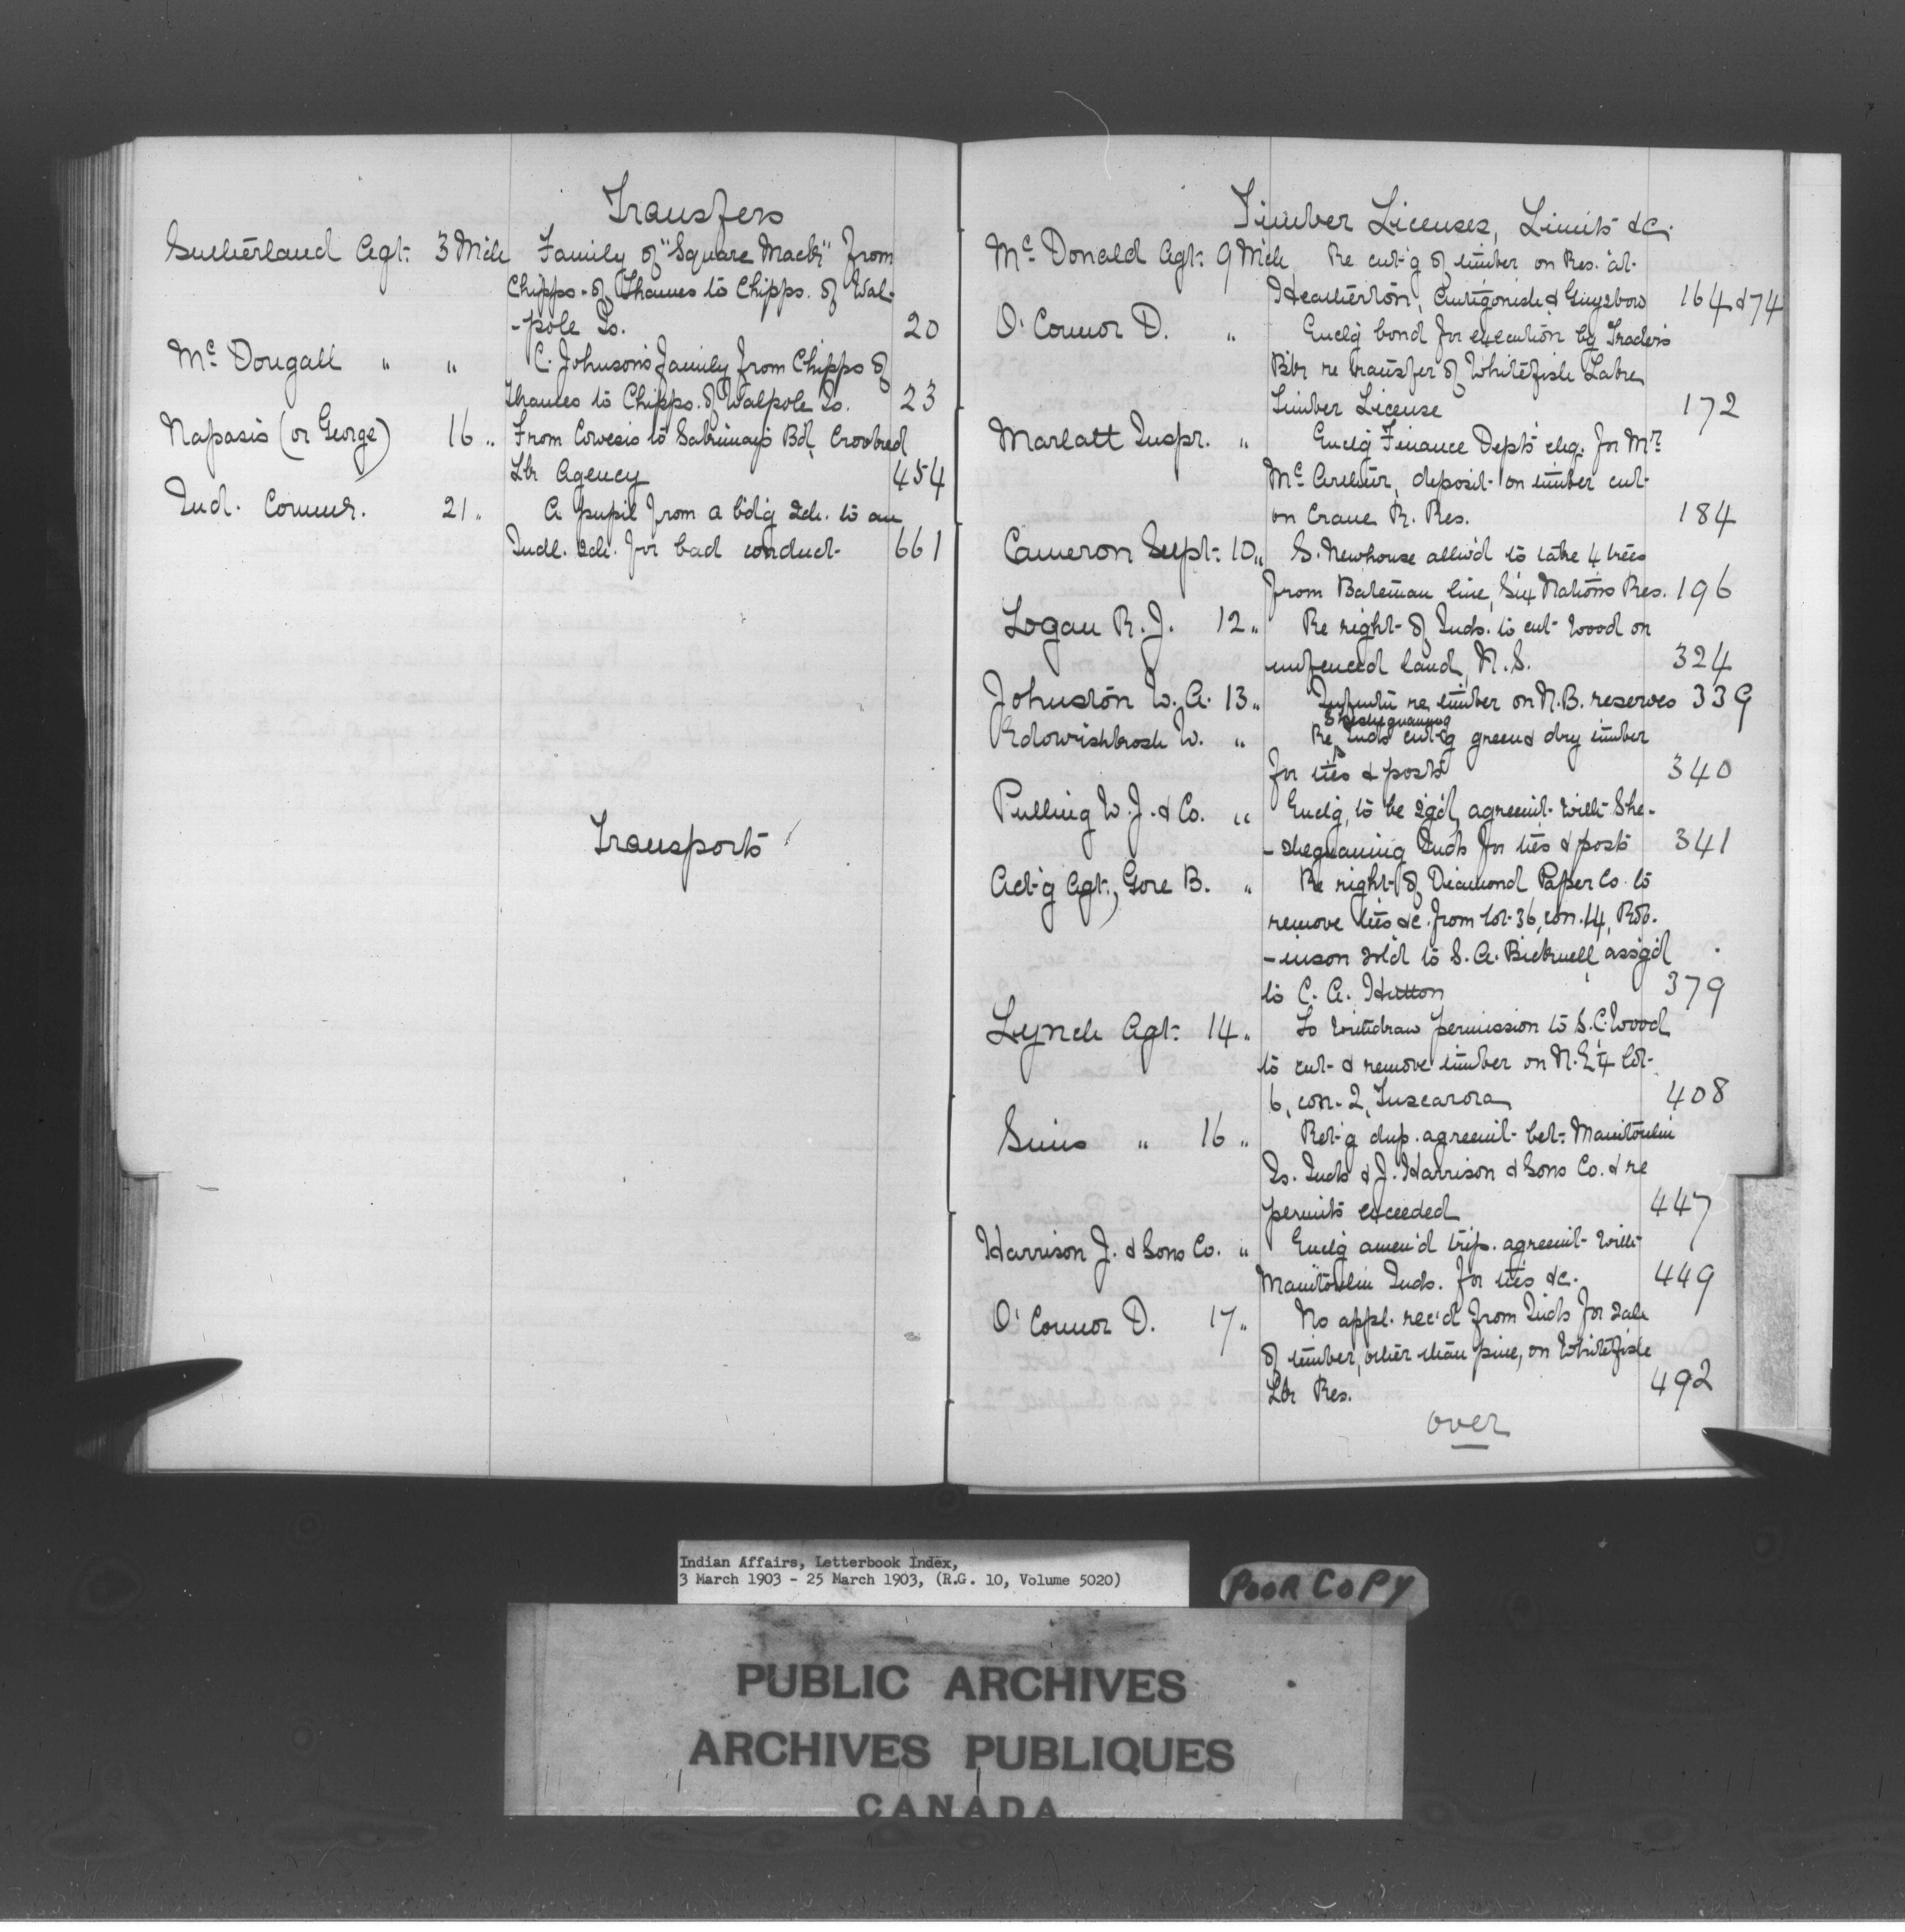 Transfers
Sutherland Agt. 3 Mch Family of "Square Mack" from
Chipps. of Thames to Chipps. of Wal-
-pole Is. 20
Mc Dougall " " C. Johnson's family from Chipps of
Thames to Chipps. of Walpole Is. 23
Napasis (or George) 16 " From Cowesis to Sakimay's Bd, Crooked
Lk Agency 454
Ind. Commr. 21 " A pupil from a bd'g Sch. to an
Indl. Sch. for bad conduct 661
Transports
Timber Licenses, Limits &c.
Mc Donald Agt. 9 Mch Re cut'g of timber on Res. at
Heatherton, Antigonish & Guysboro 164 & 74
O'Connor D. " Enclg bond for execution by Traders
Bk re transfer of Whitefish Lake
Timber License 172
Marlatt Inspr. " Enclg Finance Dept's chq. for Mr.
Mc Arthur, deposit on timber cut
on Crane R. Res. 184
Cameron Supt. 10 " S. Newhouse allw'd to take 4 trees
from Bateman line, Six Nations Res. 196
Logan R. J. 12 " Re right of Inds. to cut wood on
unfenced land, N. S. 324
Johnston W. A. 13 " Infmtn re timber on N.B. reserves 339
W. " Sheshegwaning
Re Inds cut'g green & dry timber
for ties & posts 340
Pulling W. J. & Co. " Enclg, to be sg'd, agreemt. with She-
-shegwaning Inds for ties & posts 341
Act'g Agt., Gore B. " Re right of Diamond Paper Co. to
remove ties &c. from lot 36, con. 14, Rob-
-inson sold to S. A. Bicknell, assg'd
to C. A. Hutton 379
Lynch Agt. 14 " To withdraw permission to S. C. Wood
to cut & remove timber on N. E ¼ lot
6, con. 2, Tuscarora 408
Sims " 16 " Ret'g dup. agreemt. bet. Manitoulin
Is. Inds & J. Harrison & Sons Co. & re
permits exceeded 447
Harrison J. & Sons Co. " Enclg amen'd trip. agreemt. with
Manitoulin Inds. for ties &c. 449
O'Connor D. 17 " No appl. rec'd from Inds for sale
of timber, other than pine, on Whitefish
Lk Res. 492
over
Indian Affairs, Letterbook Index,
3 March 1903 - 25 March 1903, (R.G. 10, Volume 5020)
POOR COPY
PUBLIC ARCHIVES
ARCHIVES PUBLIQUES
CANADA